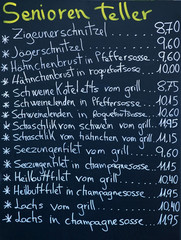 Senioren Teller
* Zigeunerschnitzel..... 8.70
* Jägerschnitzel........ 9.60
* Hähnchenbrust in Pfeffersosse... 9.60
* Hähnchenbrust in roquefortsose... 10.00
* Schweinekoteletts vom grill.... 8.75
* Schweinelenden in Pfeffersosse... 10.15
* Schweinelenden in Roquefortsose... 10.60
* Schaschlik vom schwein vom grill... 11.95
* Schaschlik vom hähnchen vom grill.. 11.15
* Seezungenfilet vom grill...... 9.60
* Seezungenfilet in champagnesosse... 11.15
* Heilbuttfilet vom grill....... 10.40
* Heilbuttfilet in champagnesosse... 11.95
* Lachs vom grill......... 10.40
* Lachs in champagnesosse... 11.95